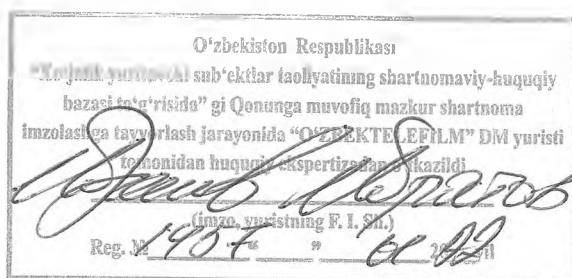 O‘zbekiston Respublikası
sub’ektlar faoliyatining shartnomaviy-huquqiy
bazasi to‘g‘risida” gi Qonunga muvofiq mazkur shartnoma
imzolashga tayyorlash jarayonida “O‘ZBEKTELEFILM” DM yuristi
tomonidan huquqiy ekspertizadan o‘tkazildi
(imzo, yuristning F. I. Sh.)
Reg. № 1907 “ ” yil